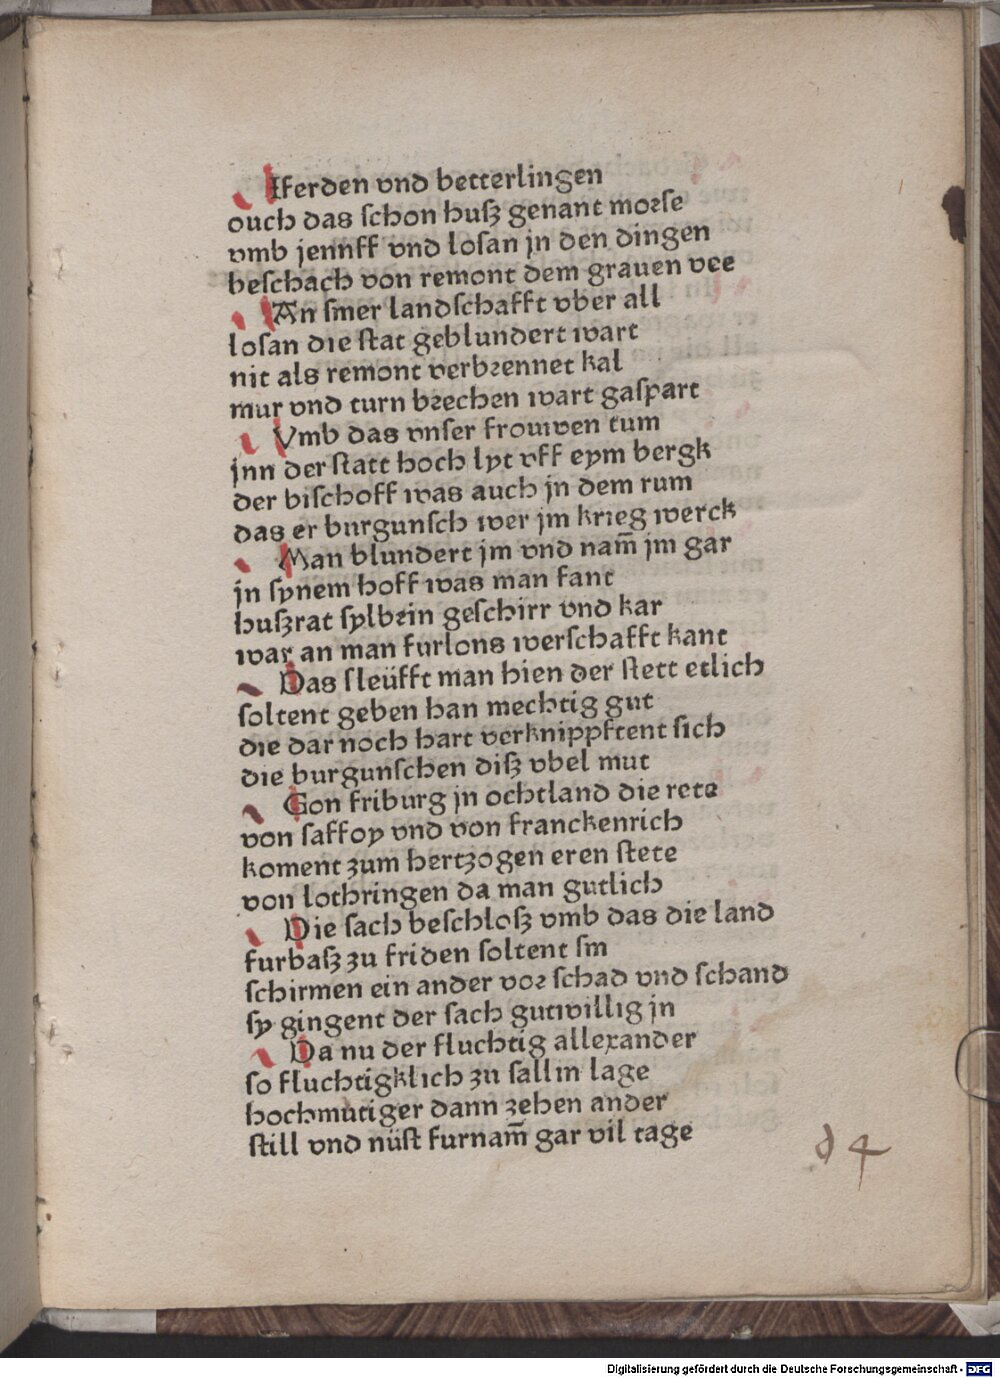 Iferden vnd betterlingen
ouch das ſchon huſz genant morſe
vmb jennff vnd loſan jn den dingen
beſchach von remont dem grauen vee
An ſiner landſchafft vber all
loſan die ſtat geblundert wart
nit als remont verbrennet kal
mur vnd turn brechen wart gaſpart
Vmb das vnſer frouwen tum
jnn der ſtatt hoch lyt vff eym bergk
der biſchoff was auch jn dem rum
das er burgunſch wer jm krieg werck
Man blundert jm vnd nam̄ jm gar
jn ſynem hoff was man fant
huſzrat ſylbrin geſchirr vnd kar
war an man furlons werſchafft kant
Das ſleüfft man hien der ſtett etlich
ſoltent geben han mechtig gut
die dar noch hart verknippftent ſich
die burgunſchen diſz vbel mut
Gon friburg jn ochtland die rete
von ſaffoy vnd von franckenrich
koment zum hertzogen eren ſtete
von lothringen da man gutlich
Die ſach beſchloſz vmb das die land
furbaſz zu friden ſoltent ſin
ſchirmen ein ander vor ſchad vnd ſchand
ſy gingent der ſach gutwillig jn
Da nu der fluchtig allexander
ſo fluchtigklich zu ſallin lage
hochmutiger dann zehen ander
ſtill vnd nüſt furnam̄ gar vil tage
d 4
Digitalisierung gefördert durch die Deutsche Forschungsgemeinschaft - DFG